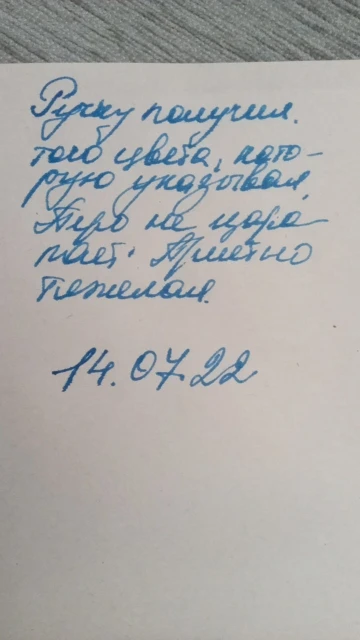 Ручку получил.
того цвета, кото-
рую указывал.
Перо не цара
пает. Приятно
тяжелая.
14.07.22